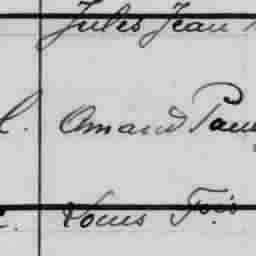 Jules Jean
l. Amand Pau
Louis Fois